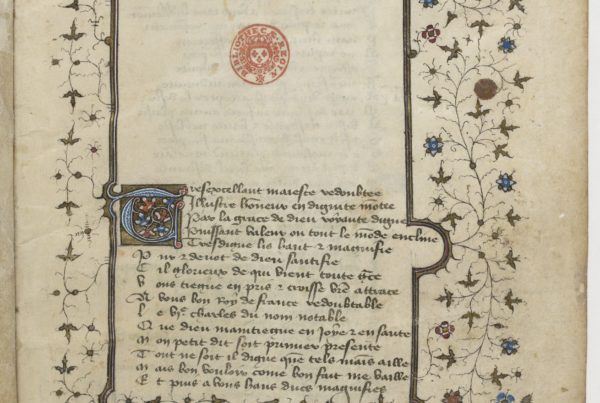 BIBLIOTHECÆ REGIÆ
Tresexcellant maieste redoubtee
Illustre honeur en dignite motee
Par la grace de dieu royaute digne
Puissant valeur ou tout le mode encline
Tresdigne lis hault ⁊ magnifie
Pur ⁊ devot de dieu santifie
Cil glorieux de qui vient toute gce
Vous tiegne en pris ⁊ croisse vre attrace
A vous bon Roy de france redoubtable
Le vje charles du nom notable
Que dieu maintiegne en joye ⁊ en sante
Mon petit dit soit primier presente
Tout ne soit il digne que tels mais aille
Mais bon vouloir come bon fait me vaille
Et puis a vous haus ducs magnifies